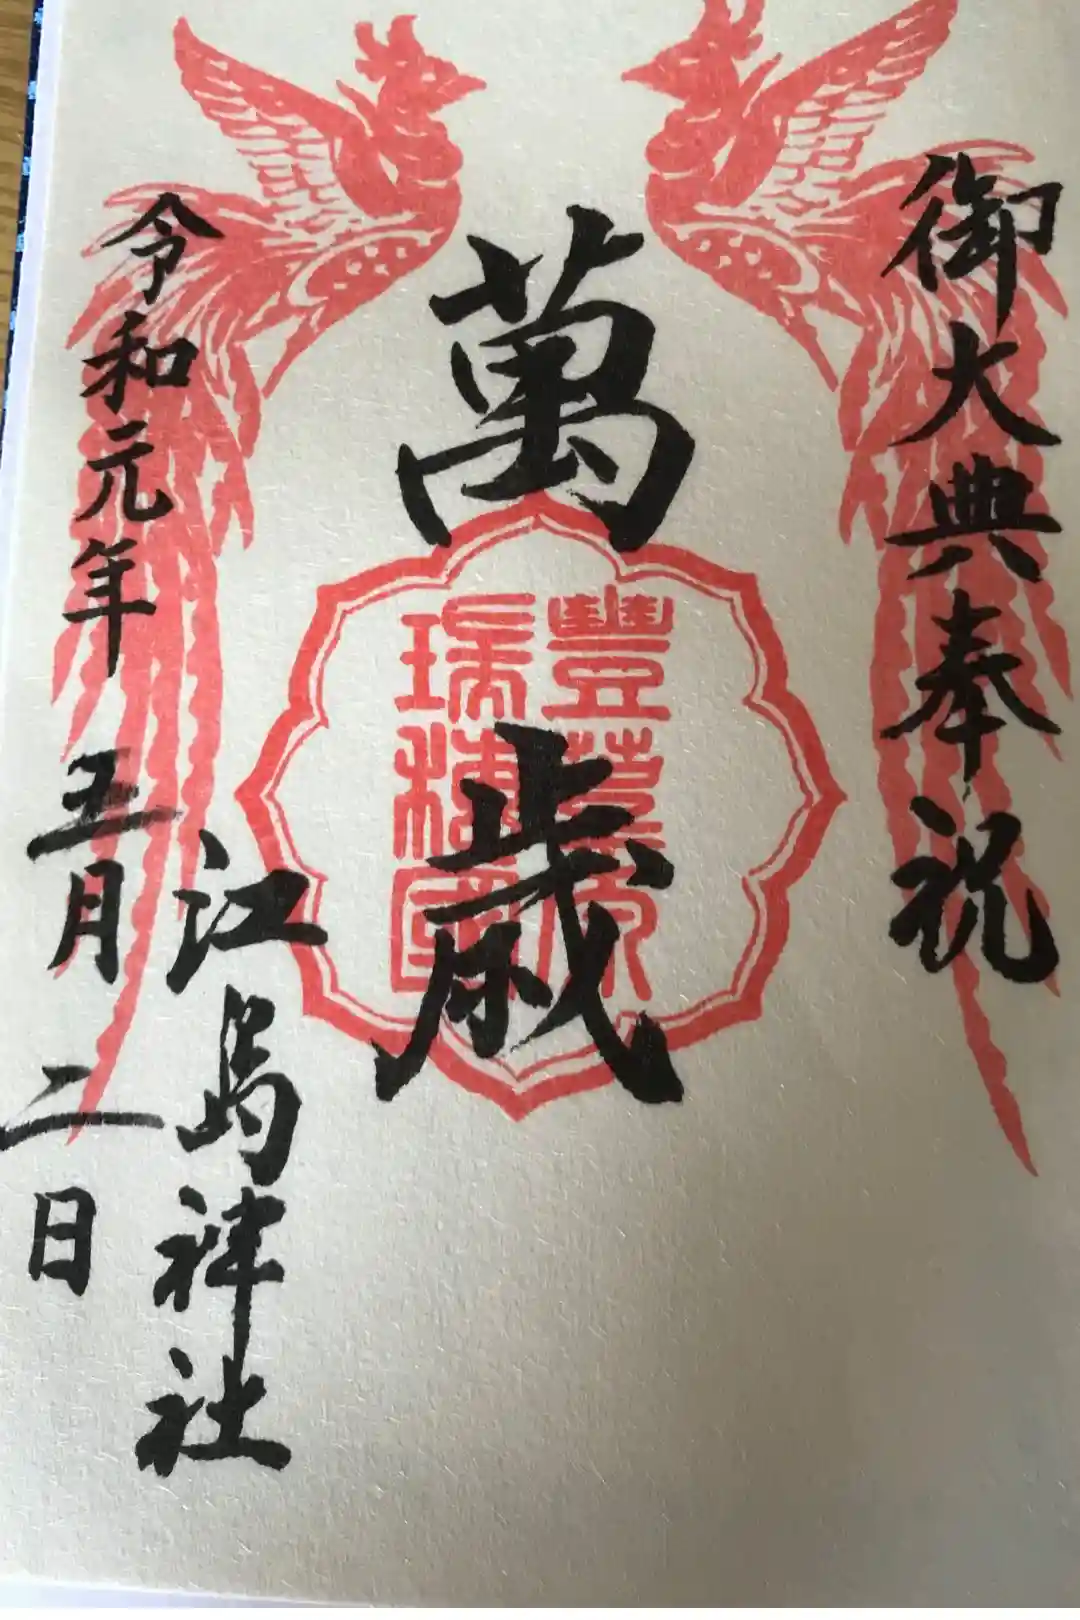 御大典奉祝
萬歳
豊葦原
瑞穂国
江島神社
令和元年五月二日